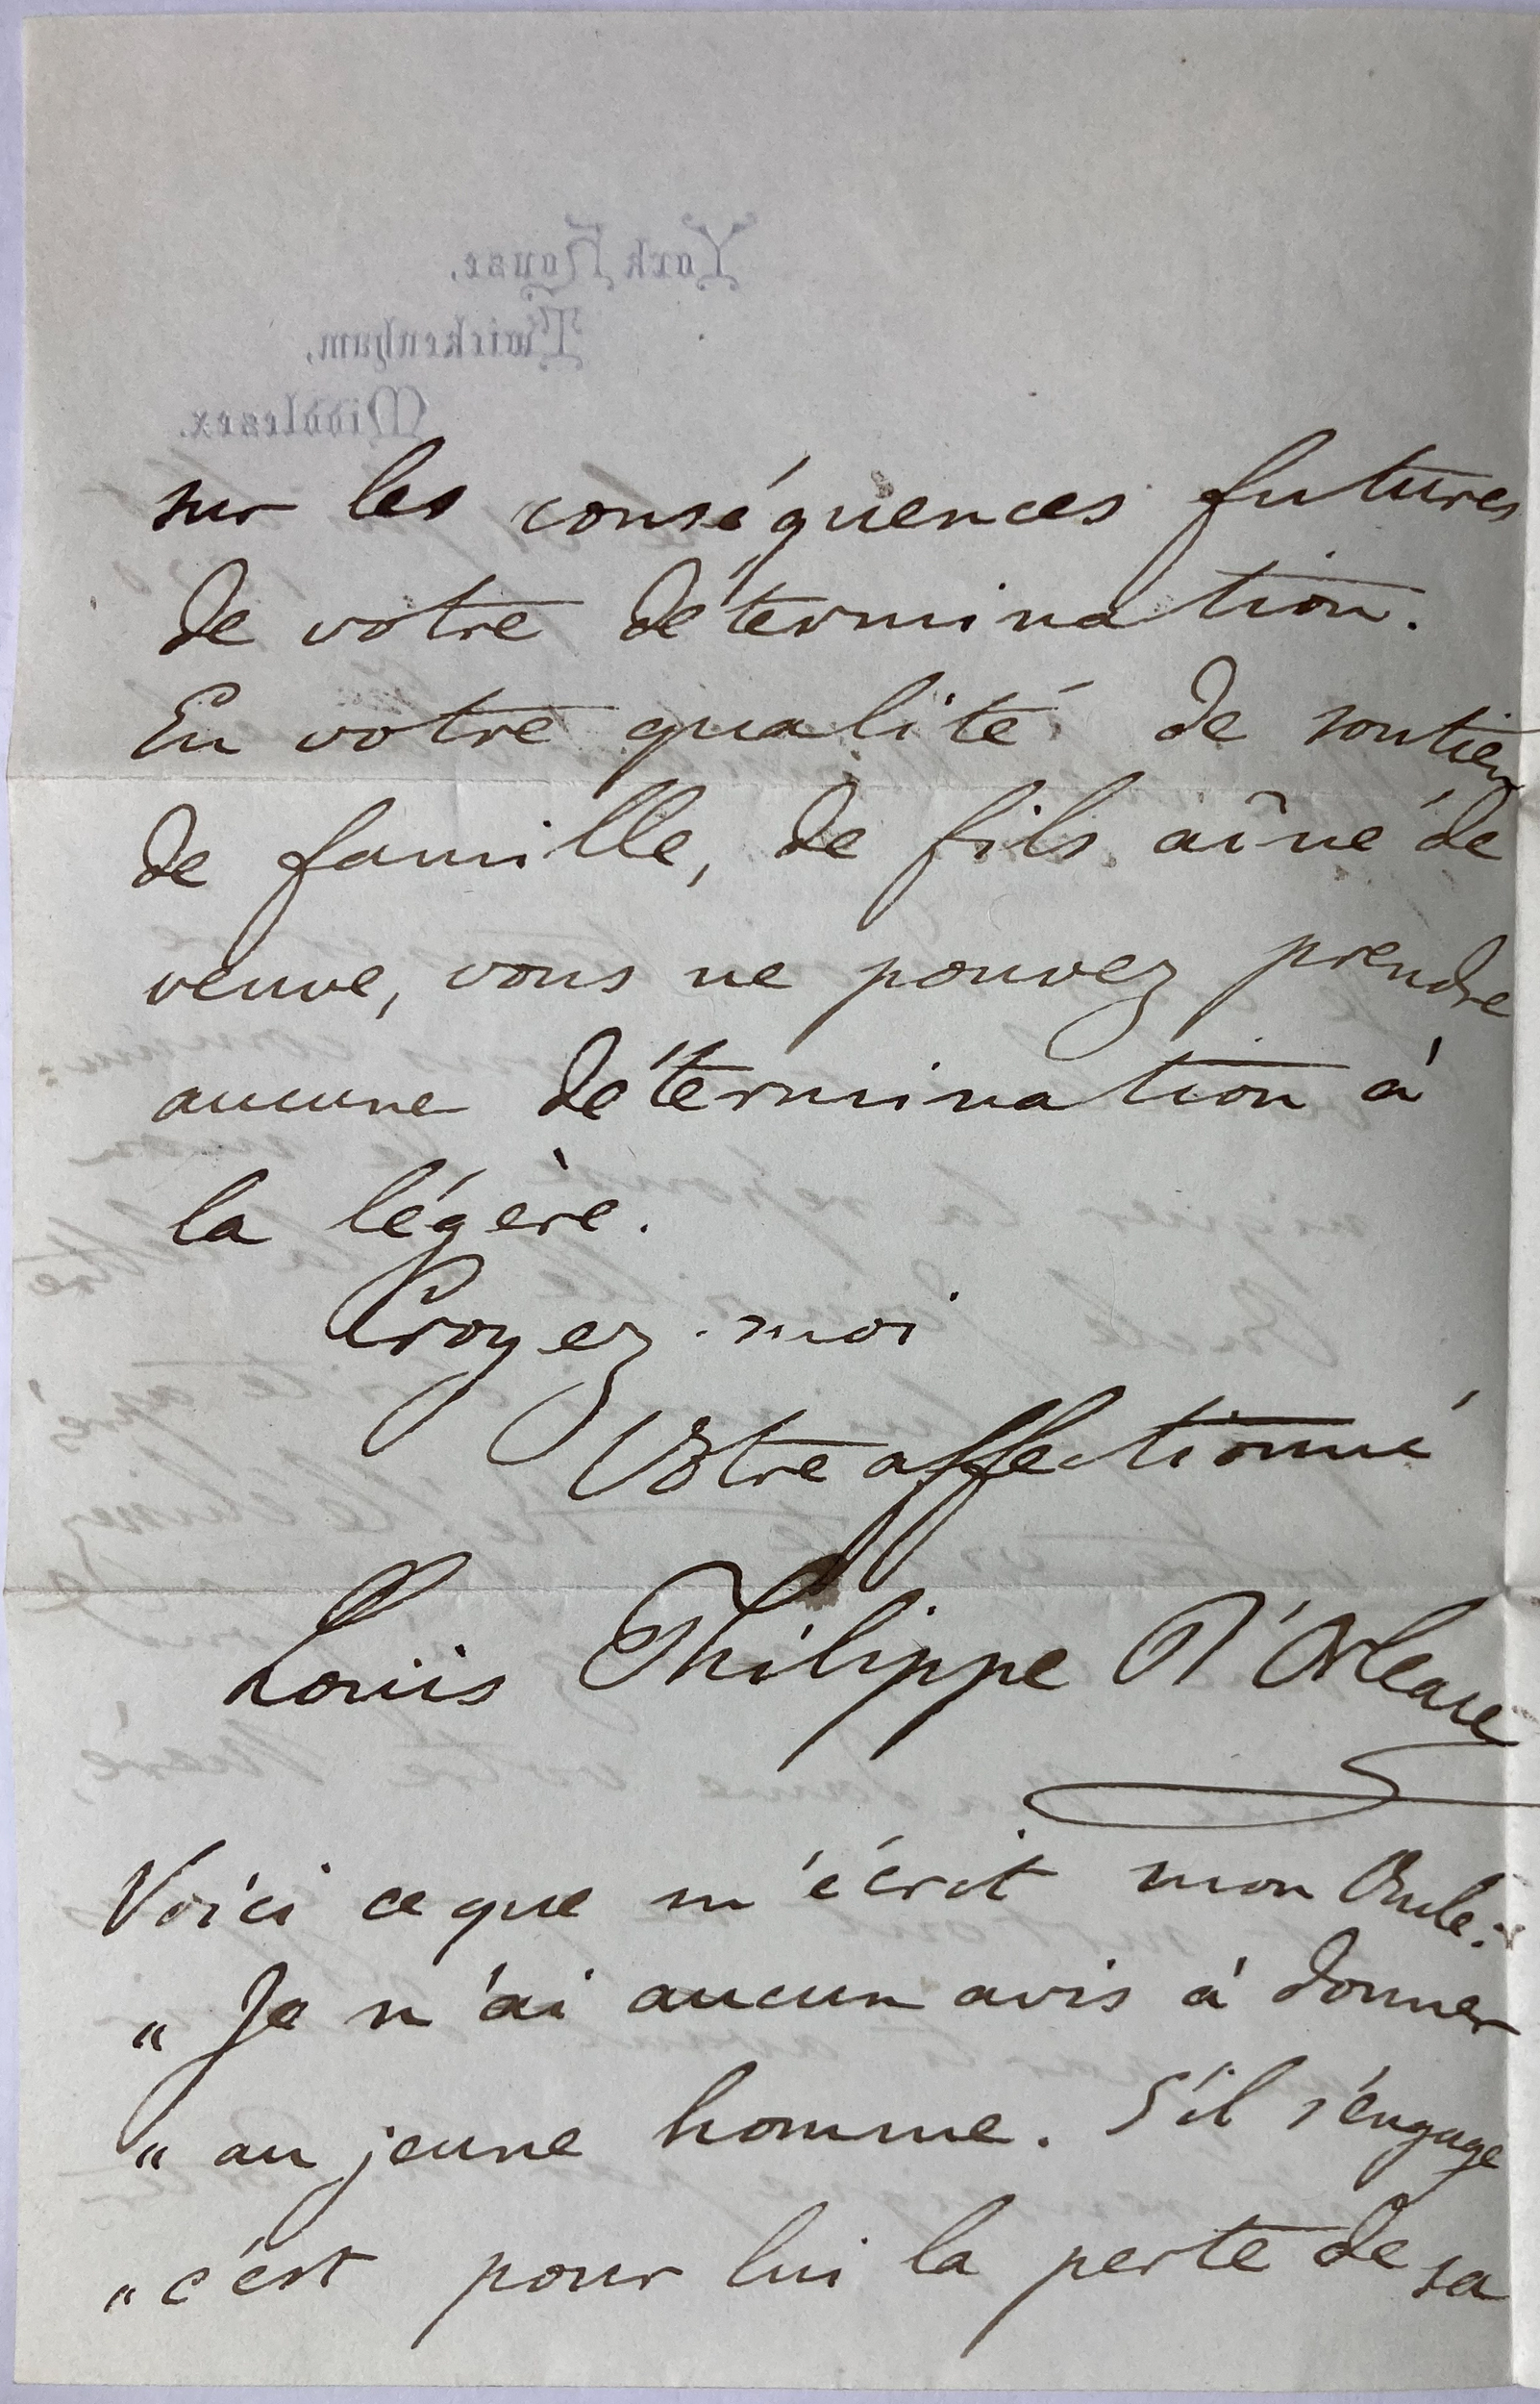 York House,
Twickenham,
Middlesex.
sur les conséquences futures
de votre détermination.
En votre qualité de soutien
de famille, de fils aîné de
veuve, vous ne pouvez prendre
aucune détermination à
la légère.
Croyez-moi
Votre affectionné
Louis Philippe d'Orléans
Voici ce que m'écrit mon Oncle:
" Je n'ai aucun avis à donner
" au jeune homme. S'il s'engage
" c'est pour lui la perte de sa